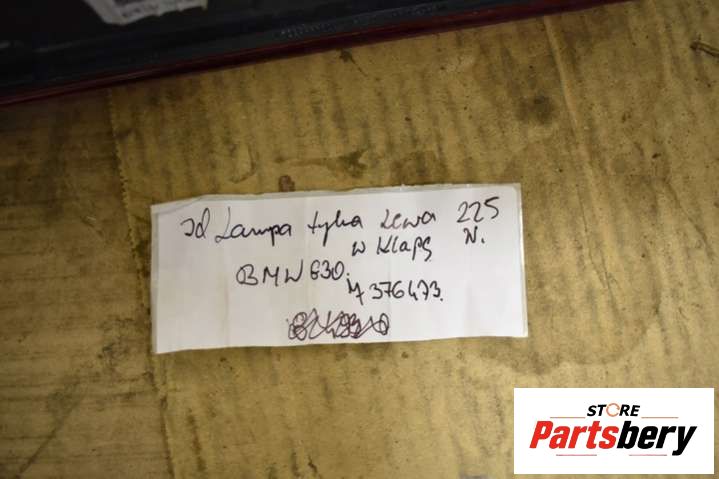 Id Lampa tylna Lewa 225
w Klapę N.
BMW G30.
M 376473.
STORE
Partsbery